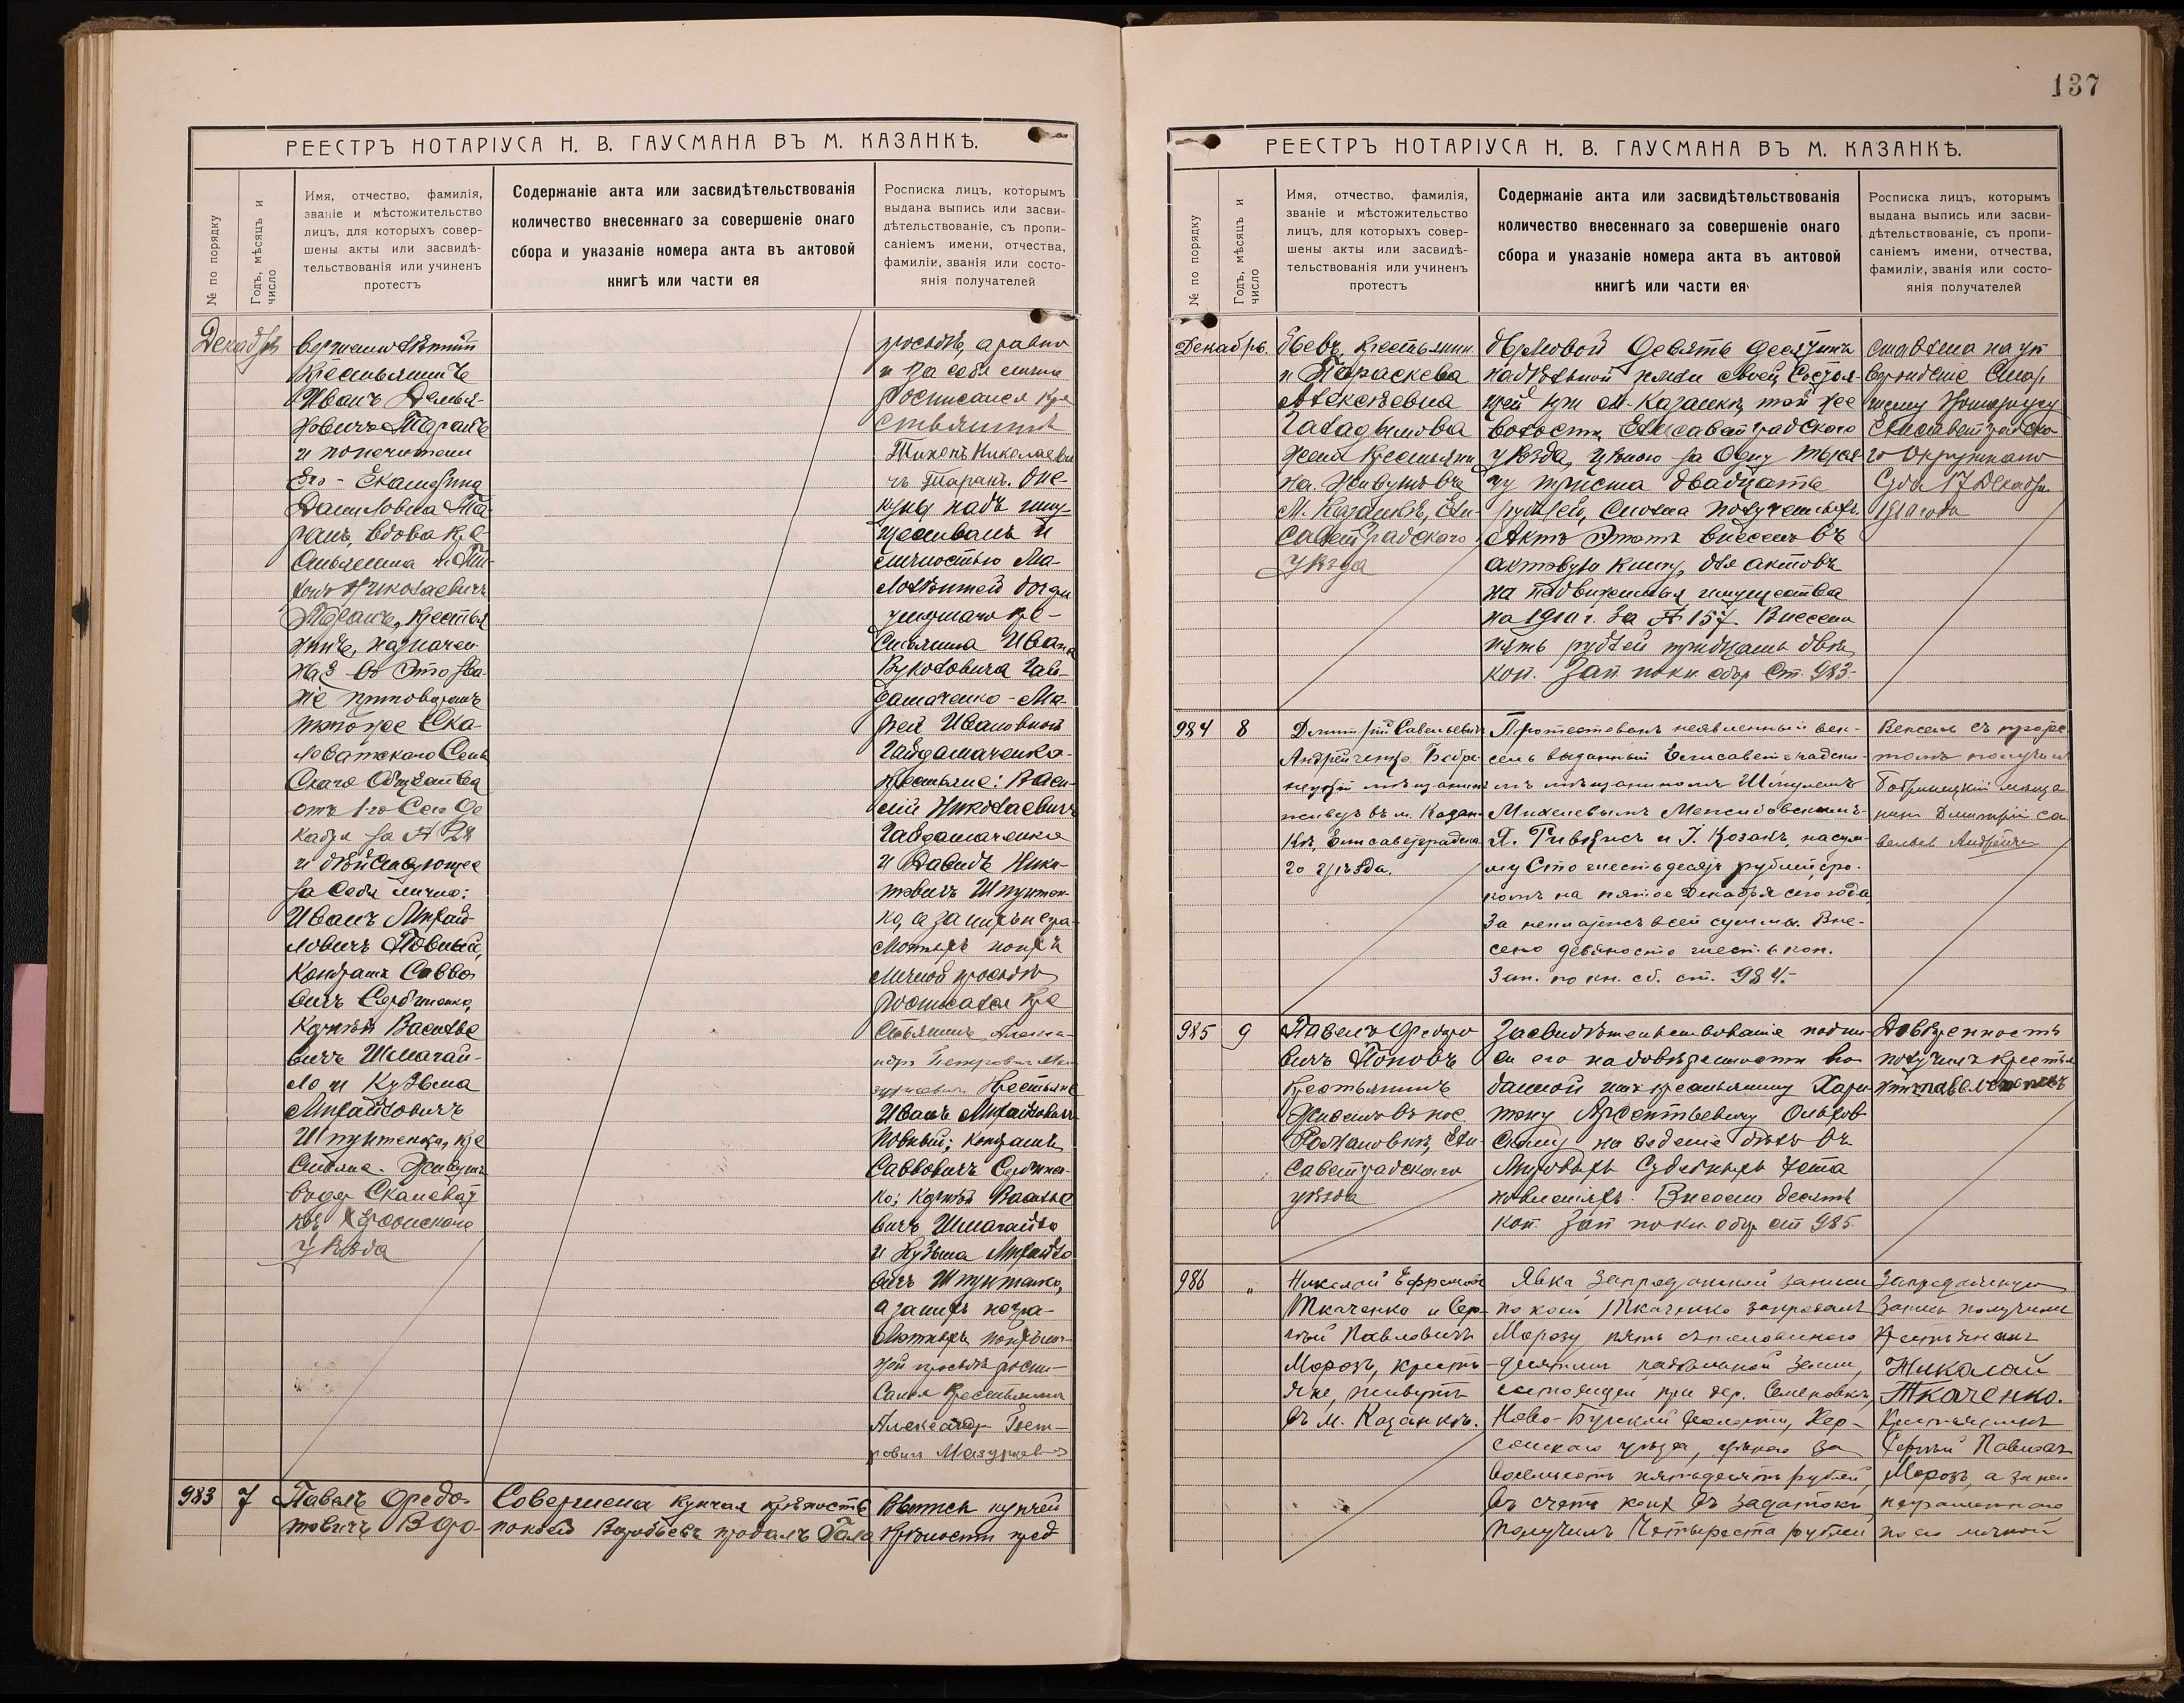 РЕЕСТРЪ НОТАРІУСА Н. В. ГАУСМАНА ВЪ М. КАЗАНКѢ.
№ по порядку
Годъ, мѣсяцъ и
число
Имя, отчество, фамилія,
званіе и мѣстожительство
лицъ, для которыхъ совер-
шены акты или засвидѣ-
тельствованія или учиненъ
протестъ
Содержаніе акта или засвидѣтельствованія
количество внесеннаго за совершеніе онаго
сбора и указаніе номера акта въ актовой
книгѣ или части ея
Росписка лицъ, которымъ
выдана выпись или засви-
дѣтельствованіе, съ пропи-
саніемъ имени, отчества,
фамиліи, званія или состо-
янія получателей
Декабрь
Крестьянинъ
Иванъ Демья-
новичъ Таранъ
и попечители
Его - Екатерина
Даниловна Та-
ранъ, вдова кре-
стьянина и Ти-
хонъ Николаевичъ
Таранъ, крестья
нинъ, назначен
въ это зва
ніе приговоромъ
Ска-
леватскаго Сель
скаго Общества
отъ 1-го Сего Де
кабря за № 28
и дѣйствующее
за Себя лично:
Иванъ Михай-
ловичъ Повный,
Кондратъ Савво
вичъ
Корнѣй Василье
вичъ Шмагай-
ло и Кузьма
Михайловичъ
Шпунтенко, кре
стьяне. Живутъ
въ дер Скалеват
кѣ Херсонскаго
уѣзда
просьбѣ, а равно
и за себя лично
Росписался кре
стьянинъ
Тихонъ Николаеви
чъ Таранъ. Опе-
куны надъ иму-
ществомъ и
личностью Ма-
лолѣтней дочери
умершаго кре-
стьянина Ивана
Гай-
дамаченко - Ма-
рѳы Ивановной
Гайдамаченко -
крестьяне: Васи-
лій Николаевичъ
Гайдамаченко
и Давидъ Ники-
товичъ Шпунтен-
ко, а за ними негра-
мотныхъ по ихъ
личной просьбѣ
росписался кре
стьянинъ Алекса-
ндръ Петровичъ Ма-
зуркевичъ. Крестьяне
Иванъ Михайловичъ
Повный; Кондратъ
Саввовичъ
ко; Корнѣй Василье
вичъ Шмагайло
и Кузьма Михайло
вичъ Шпунтенко,
а за нихъ негра-
мотныхъ по ихъ лич-
ной просьбѣ роспи-
сался крестьянинъ
Александръ Пет-
ровичъ Мазуркевичъ
983
7
Павелъ Ѳедо-
товичъ Воро-
Совершена купчая крѣпость
по коей Воробьевъ продалъ Гала
Выпись купчей
крѣпости пред
137
РЕЕСТРЪ НОТАРІУСА Н. В. ГАУСМАНА ВЪ М. КАЗАНКѢ.
№ по порядку
Годъ, мѣсяцъ и
число
Имя, отчество, фамилія,
званіе и мѣстожительство
лицъ, для которыхъ совер-
шены акты или засвидѣ-
тельствованія или учиненъ
протестъ
Содержаніе акта или засвидѣтельствованія
количество внесеннаго за совершеніе онаго
сбора и указаніе номера акта въ актовой
книгѣ или части ея
Росписка лицъ, которымъ
выдана выпись или засви-
дѣтельствованіе, съ пропи-
саніемъ имени, отчества,
фамиліи, званія или состо-
янія получателей
Декабрь.
бьевъ, крестьянин
и Параскева
Алексѣевна
Галадымова
жена крестьяни
на. Живутъ въ
М. Казанкѣ, Ели-
саветградскаго
уѣзда
дымовой девять десятинъ
надѣльной земли своей, состоя-
щей при М. Казанкѣ, той же
волости, Елисаветградскаго
уѣзда, цѣною за одну тыся-
чу триста двадцать
рублей, сполна полученыхъ.
Актъ этотъ внесенъ въ
актовую книгу, для актовъ
на недвижимыя имущества
на 1910 г. за № 157. Внесено
пять рублей тридцать двѣ
коп. Зап. по кн. сбор. Ст. 983-
ставлена на ут
вержденіе Стар
шему Нотаріусу
Елисаветградска-
го Окружнаго
Суда 17 Декабря
1910 года
984
8
Дмитрій Савельевичъ
Андрейченко. Бобри-
нецкій мѣщанинъ
живетъ въ м. Казан-
кѣ, Елисаветградска
го уѣзда.
Протестованъ неявленный век-
сель выданный Елисаветградски-
мъ мѣщаниномъ Шмулемъ
Михелевымъ
и І. Козакъ, на сум-
му Сто шестьдесятъ рублей, сро-
комъ на пятое Декабря сего года
За неплатежъ всей суммы. Вне-
сено девяносто шесть коп.
Зап. по кн. сб. ст. 984.-
Вексель съ проте
стомъ получилъ
Бобринецкій мѣща
нинъ Дмитрій Са
вельевъ Андрейченко
985
9
Павелъ Ѳедоро
вичъ Поповъ
крестьянинъ
Живетъ въ пос
Романовкѣ, Ели-
саветградскаго
уѣзда
Засвидѣтельствованіе подпи-
си его на довѣренности вы-
данной имъ крестьянину Хари-
тону Арсентьевичу Ольхов
скому на веденіе дѣлъ въ
Мировыхъ Судебныхъ Уста
новленіяхъ. Внесено десять
коп. Зап по кн. сбор ст 985.
Довѣренность
получилъ крестья
нинъ Павелъ Поповъ
986
"
Николай Ефремовъ
Ткаченко и Сер-
гѣй Павловичъ
Морозъ, кресть-
яне, живутъ
въ м. Казанкѣ.
Явка запродажной записи
по коей Ткаченко запродалъ
Морозу пять съ половиною
десятинъ надѣльной земли,
состоящей при дер. Семеновкѣ,
Ново-Бугской волости, Хер-
сонскаго уѣзда, цѣною за
восемьсотъ пятьдесятъ рублей,
въ счетъ коихъ въ задатокъ
получилъ Четыреста рублей
Запродажную
запись получили
Крестьянинъ
Николай
Ткаченко.
Крестьянинъ
Сергѣй Павловъ
Морозъ, а за него
неграмотнаго
по его личной